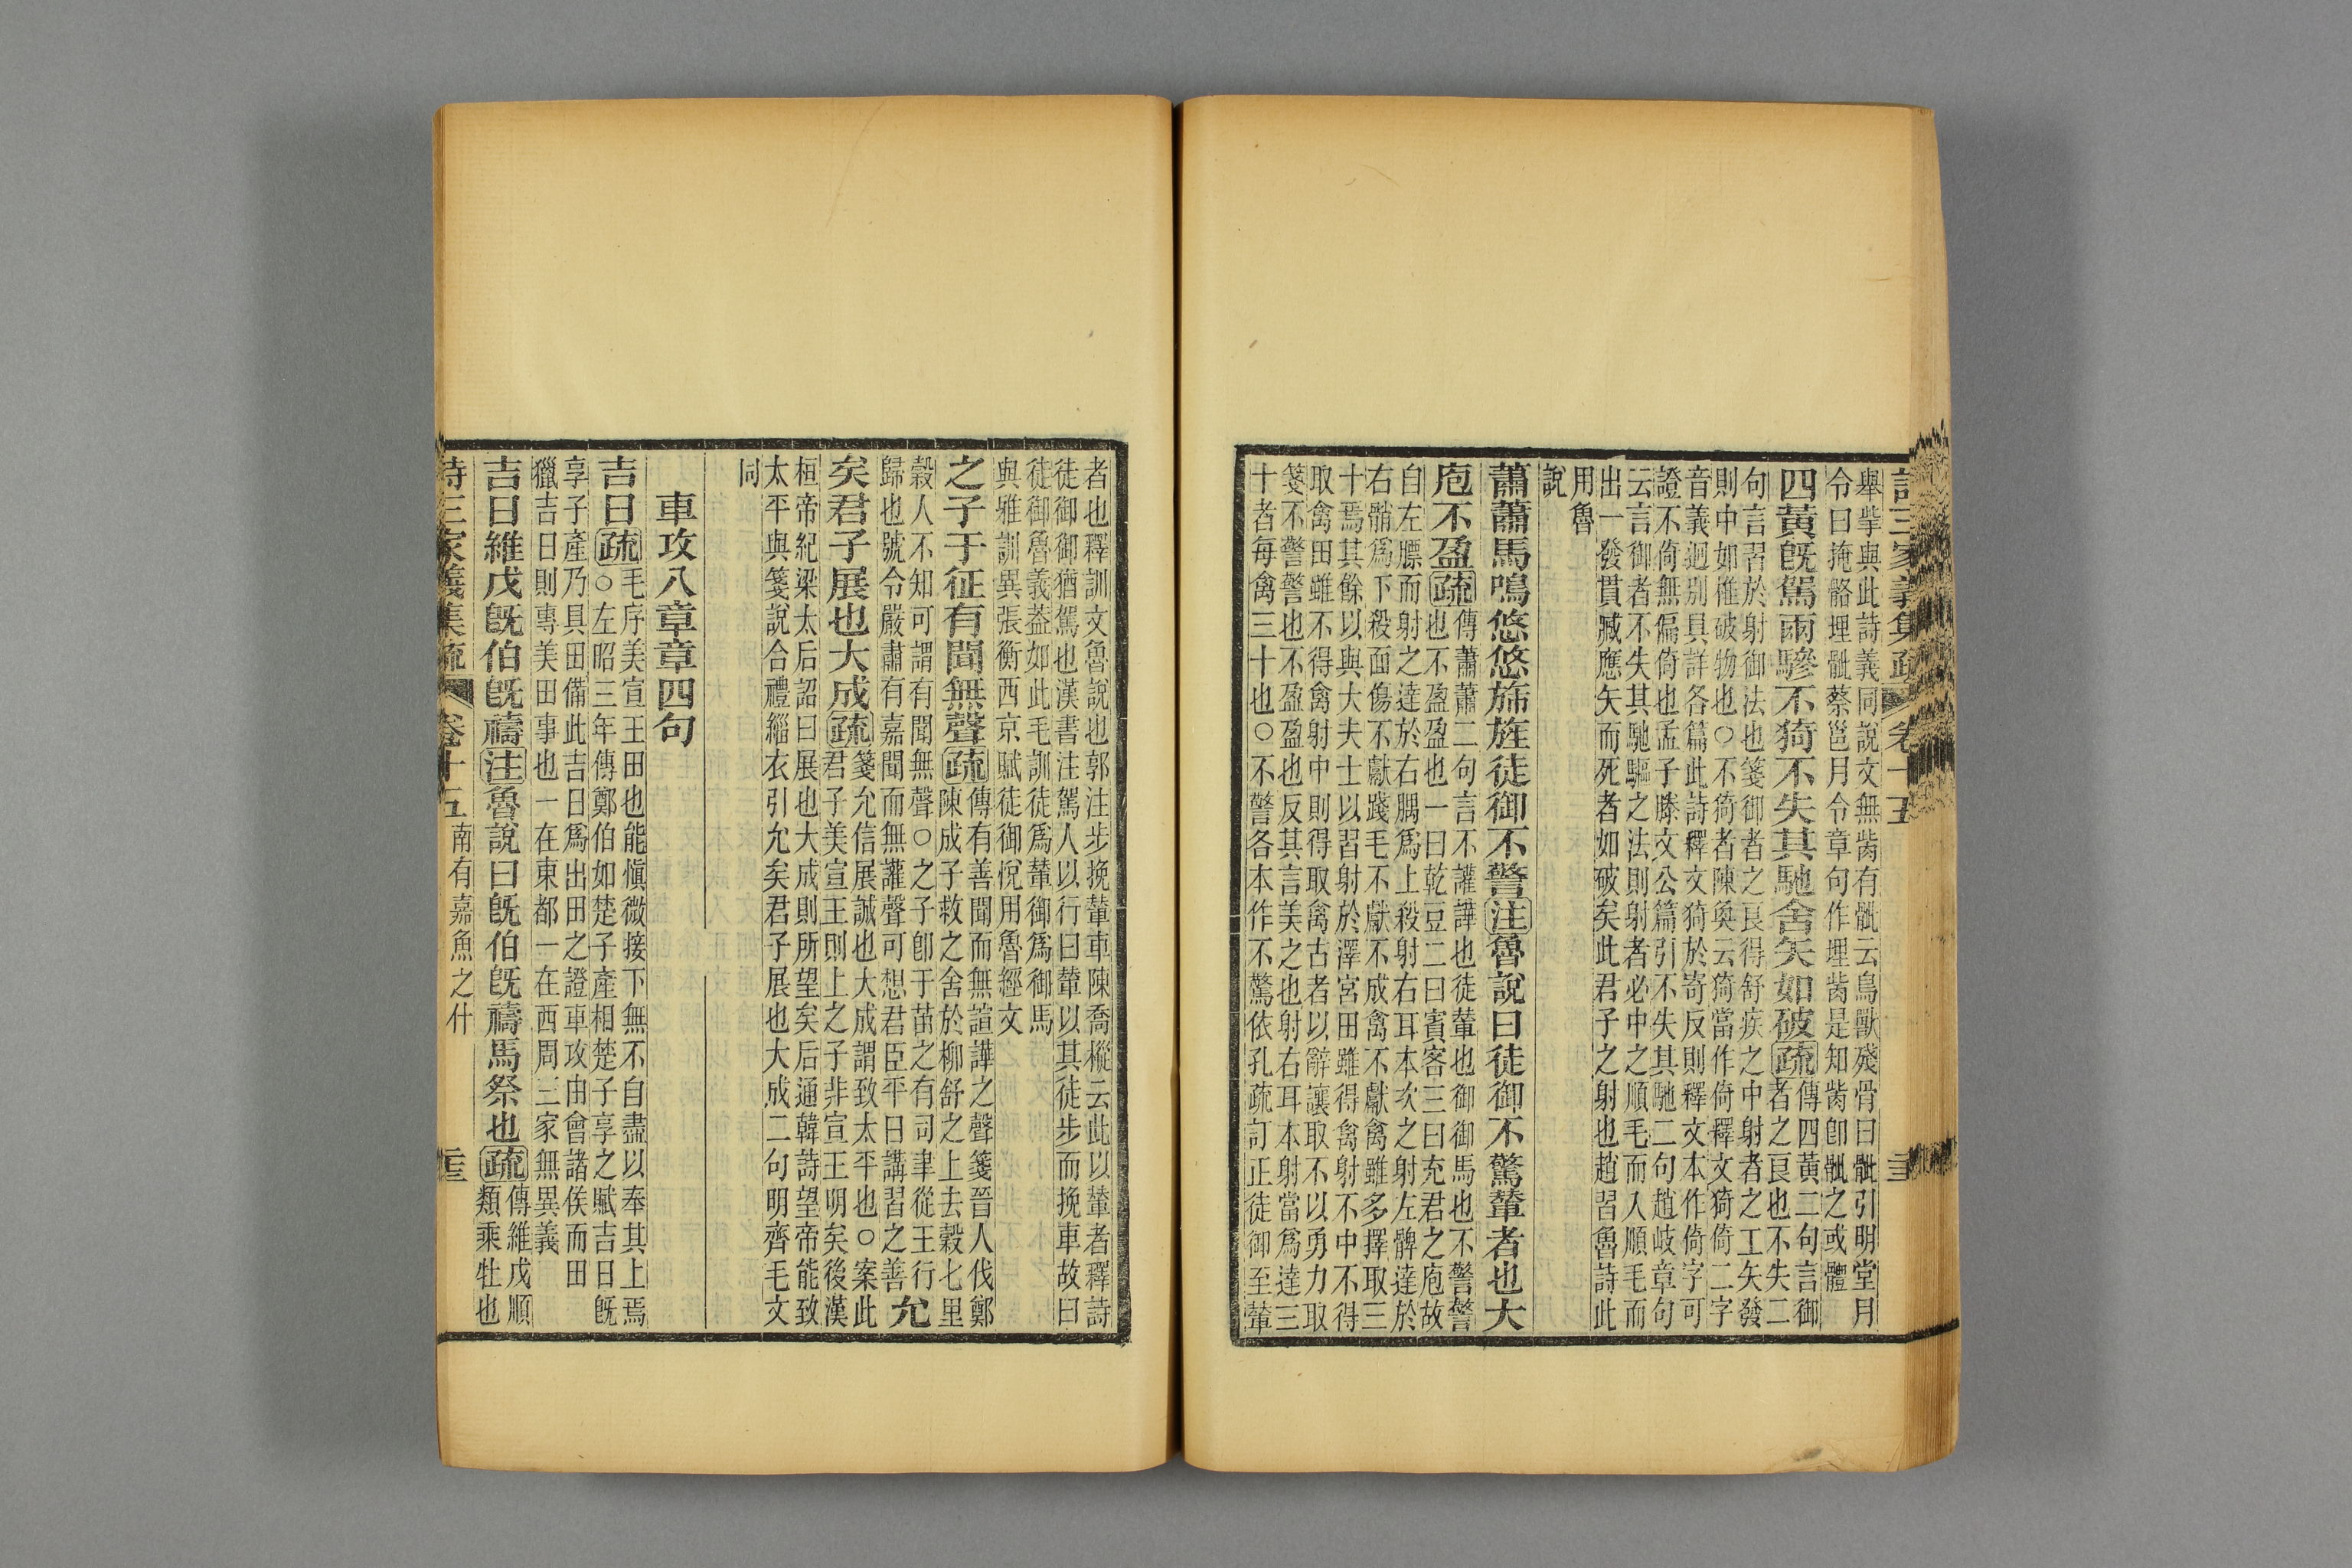 詩三家義集疏 卷十五
舉㧘與此詩義同說文無㱴有骴云鳥獸殘骨曰骴引明堂月
令曰掩骼埋骴蔡邕月令章句作埋㱴是知㱴卽骴之或體
四黃旣駕兩驂不猗不失其馳舍矢如破疏傳四黃二句言御
者之良也不失二
句言習於射御法也箋御者之良得舒疾之中射者之工矢發
則中如椎破物也○不猗者陳奐云猗當作倚釋文猗倚二字
音義迥別具詳各篇此詩釋文猗於寄反則釋文本作倚字可
證不倚無偏倚也孟子滕文公篇引不失其馳二句趙岐章句
云言御者不失其馳驅之法則射者必中之順毛而入順毛而
出一發貫臧應矢而死者如破矣此君子之射也趙習魯詩此
用魯
說
蕭蕭馬鳴悠悠旆旌徒御不警注魯說曰徒御不驚輦者也大
庖不盈疏傳蕭蕭二句言不讙譁也徒輦也御御馬也不警警
也不盈盈也一曰乾豆二曰賓客三曰充君之庖故
自左膘而射之達於右腢爲上殺射右耳本次之射左髀達於
右䯚爲下殺面傷不獻踐毛不獻不成禽不獻禽雖多擇取三
十焉其餘以與大夫士以習射於澤宮田雖得禽射不中不得
取禽田雖不得禽射中則得取禽古者以辭讓取不以勇力取
箋不警警也不盈盈也反其言美之也射右耳本射當爲達三
十者每禽三十也○不警各本作不驚依孔疏訂正徒御至輦
者也釋訓文魯說也郭注步挽輦車陳喬樅云此以輦者釋詩
徒御御猶駕也漢書注駕人以行曰輦以其徒步而挽車故曰
徒御魯義葢如此毛訓徒爲輦御爲御馬
與雅訓異張衡西京賦徒御悅用魯經文
之子于征有聞無聲疏傳有善聞而無諠譁之聲箋晉人伐鄭
陳成子救之舍於柳舒之上去穀七里
穀人不知可謂有聞無聲○之子卽于苗之有司聿從王行
歸也號令嚴肅有嘉聞而無讙聲可想君臣平日講習之善允
矣君子展也大成疏箋允信展誠也大成謂致太平也○案此
君子美宣王則上之子非宣王明矣後漢
桓帝紀梁太后詔曰展也大成則所望矣后通韓詩望帝能致
太平與箋說合禮緇衣引允矣君子展也大成二句明齊毛文
同
車攻八章章四句
吉日疏毛序美宣王田也能愼微接下無不自盡以奉其上焉
○左昭三年傳鄭伯如楚子產相楚子享之賦吉日旣
享子產乃具田備此吉日爲出田之證車攻由會諸侯而田
獵吉日則專美田事也一在東都一在西周三家無異義
吉日維戊旣伯旣禱注魯說曰旣伯旣禱馬祭也疏傳維戊順
類乘牡也
詩三家義集疏 卷十五 南有嘉魚之什